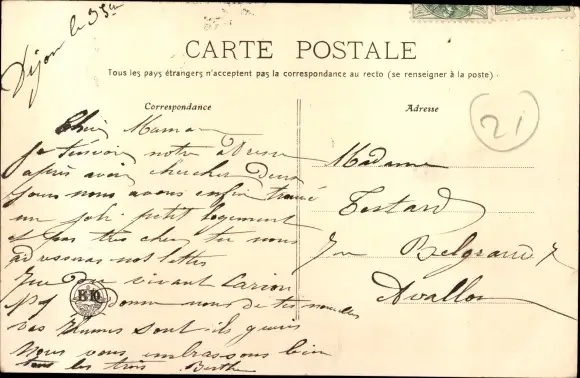 Dijon le 3 5bre
CARTE POSTALE
Tous les pays étrangers n'acceptent pas la correspondance au recto (se renseigner à la poste).
Correspondance
Adresse
21
Chère Maman
je t'envoie notre adresse
après avoir chercher deux
jours nous avons enfin trouvé
un joli petit logement
et pas très cher tu nous
adresseras nos lettres
Rue
Donne nous de tes nouvelles
vas Rhumes sont ils guéris
nous vous embrassons bien
tous les trois Berthe
BD
Madame
Testard
Rue Belgrand 7
Avallon